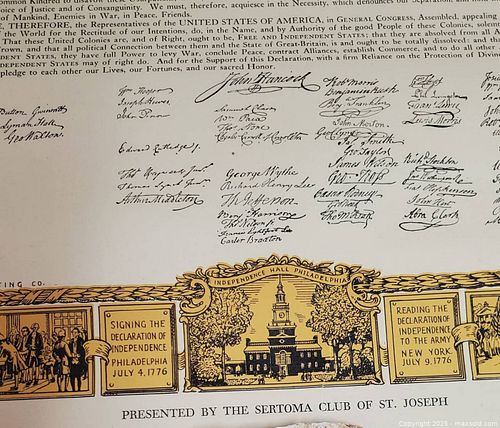 of Justice and of Consanguinity. We must, therefore, acquiesce in the Necessity, which denounces our
of Mankind, Enemies in War, in Peace, Friends.
E, THEREFORE, the Representatives of the UNITED STATES OF AMERICA, in GENERAL CONGRESS, Assembled,
f the World for the Rectitude of our Intentions, do, in the Name, and by Authority of the good People of these Colonies,
That these United Colonies are, and of Right, ought to be, FREE AND INDEPENDENT STATES; that they are absolved from all
rown, and that all political Connection between them and the State of Great-Britain, is and ought to be totally dissolved; and
ENT STATES, they have full Power to levy War, conclude Peace, contract Alliances, establish Commerce, and to do all other
EPENDENT STATES may of right do. And for the Support of this Declaration, with a firm Reliance on the Protection of
pledge to each other our Lives, our Fortunes, and our sacred Honor.
John Hancock
Button Gwinnett
Lyman Hall
Geo Walton.
Wm Hooper
Joseph Hewes,
John Penn
Edward Rutledge
Thos Heyward Junr.
Thomas Lynch Junr.
Arthur Middleton
Samuel Chase
Wm Paca
Thos Stone
Charles Carroll of Carrollton
George Wythe
Richard Henry Lee
Th Jefferson
Benj Harrison
Thos Nelson jr.
Francis Lightfoot Lee
Carter Braxton
Robt Morris
Benjamin Rush
Benj. Franklin
John Morton
Geo Clymer
Jas. Smith
Geo. Taylor
James Wilson
Geo. Ross
Caesar Rodney
Geo Read
Tho M:Kean
Phil. Livingston
Frans. Lewis
Lewis Morris
Richd. Stockton
Jno Witherspoon
Fras. Hopkinson
John Hart
Abra Clark
TING CO.
INDEPENDENCE HALL PHILADELPHIA
SIGNING THE
DECLARATION OF
INDEPENDENCE
PHILADELPHIA
JULY 4, 1776
READING THE
DECLARATION OF
INDEPENDENCE
TO THE ARMY
NEW YORK
JULY 9, 1776
PRESENTED BY THE SERTOMA CLUB OF ST. JOSEPH
Copyright 2025 - maxsold.com